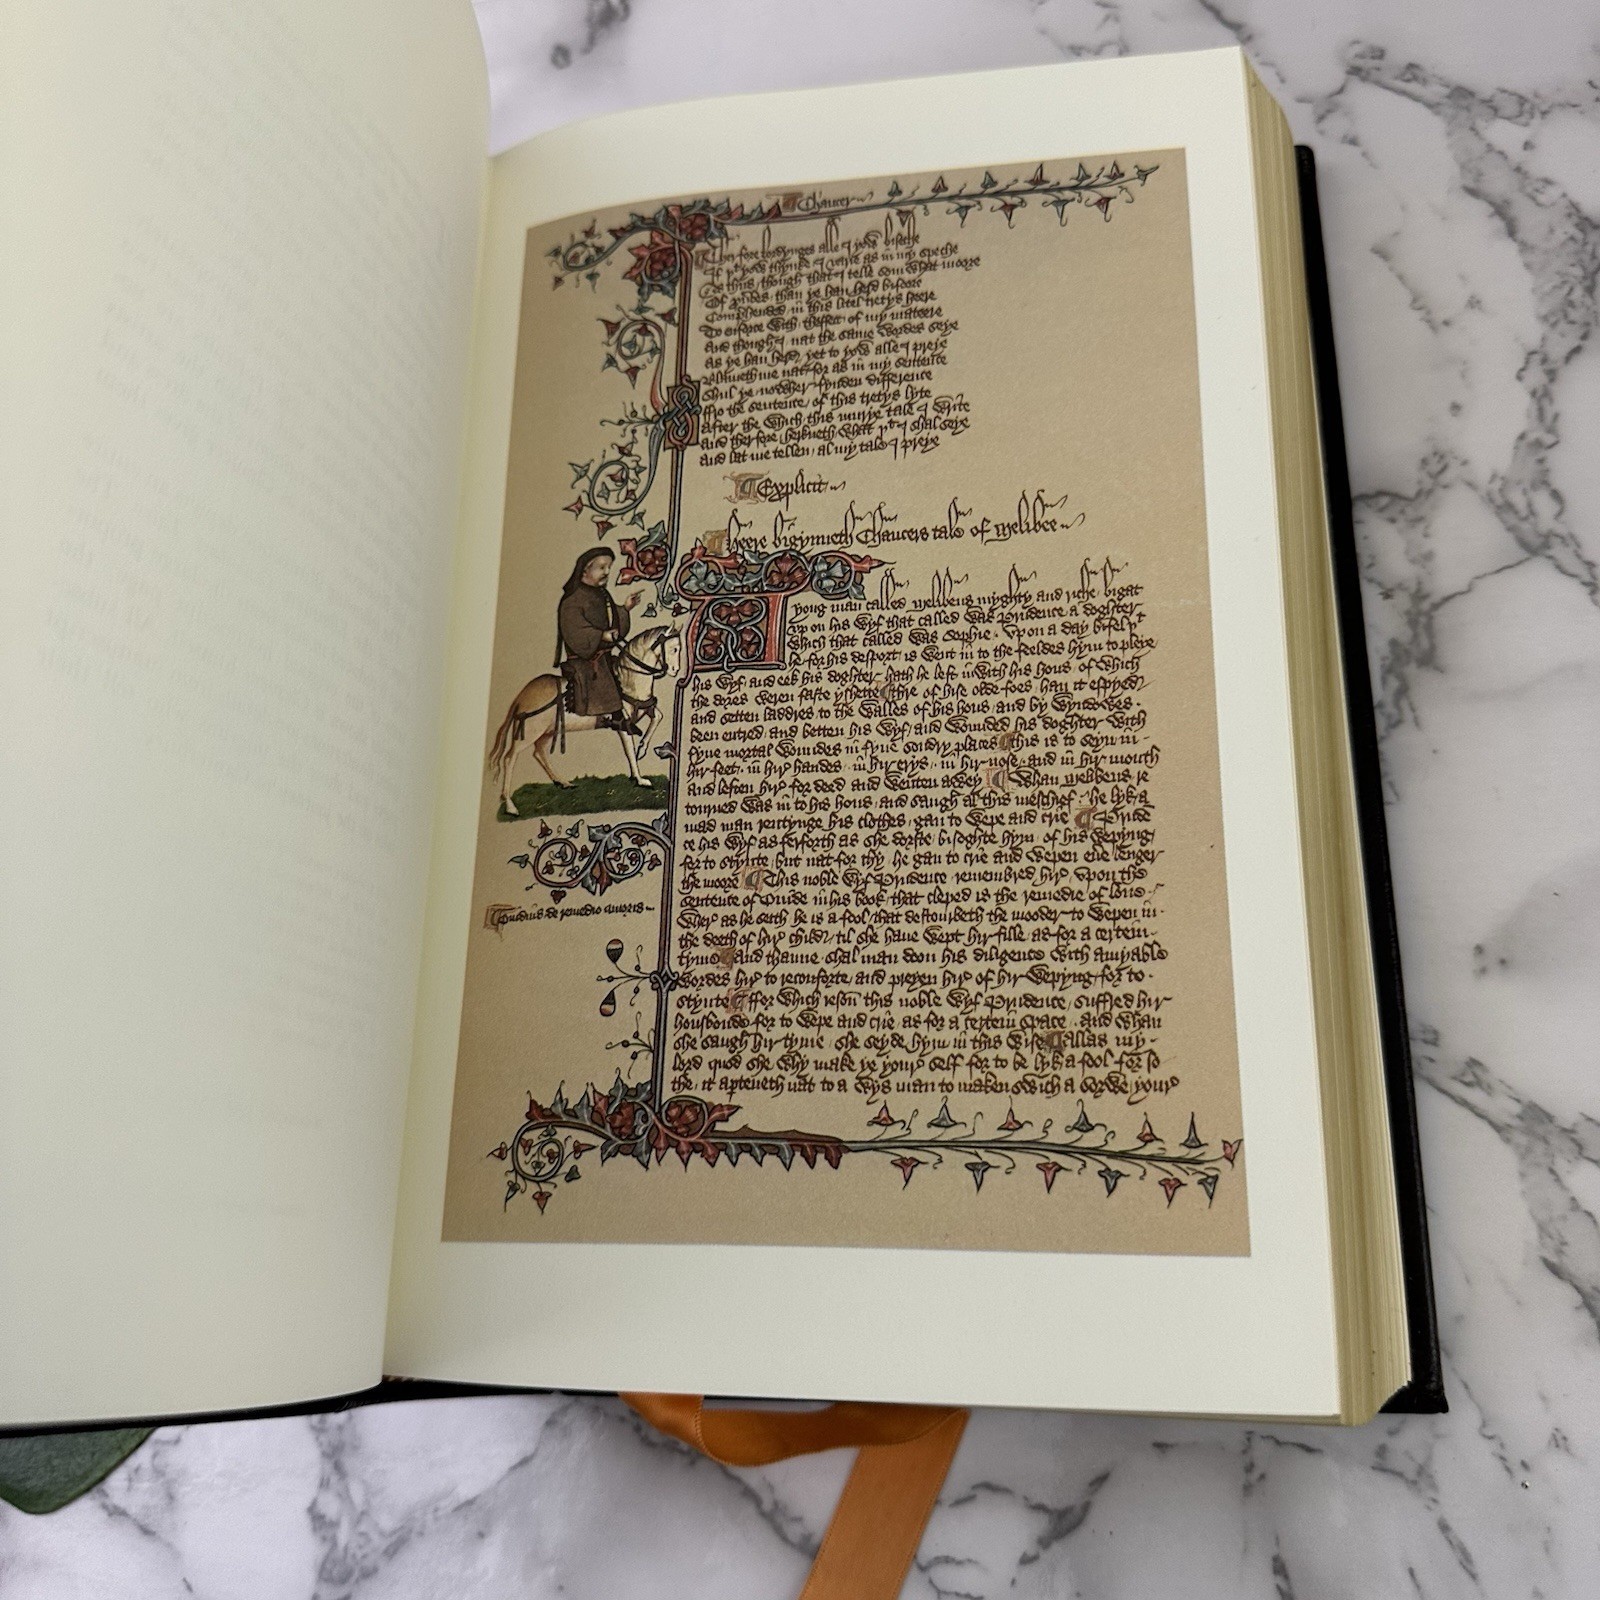 ¶ Chaucer
Therfore lordynges alle I yow biseche
If þt yow thynke I varie as in my speche
As thus, though that I telle som what moore
Of prouerbes, than ye han herd bifoore
Comprehended, in this litel tretys heere
To enforce with, theffect of my mateere
And though I nat the same wordes seye
As ye han herd, yet to yow alle I preye
Blameth me nat, for as in my sentence
Shul ye nowher fynden difference
ffro the sentence, of this tretys lyte
After the which, this murye tale I write
And therfore, herkneth what þt I shal seye
And lat me tellen, al my tale I preye
¶ Explicit
¶ Heere bigynneth Chaucers tale of Melibee
A yong man called Melibeus myghty and riche, bigat
vp on his wyf that called was Prudence a doghter
which that called was Sophie. vpon a day bifel þt
he for his desport, is went in to the feeldes hym to pleye
his wyf, and eek his doghter, hath he left inwith his hous, of which
the dores weren faste yshette ¶ thre of hise olde foes, han it espyed
and setten laddres to the walles of his hous, and by wyndowes
been entred, and betten his wyf, and wounded his doghter with
fyue mortal woundes in fyue sondry places ¶ this is to seyn in
hir feet, in hir handes, in hir erys, in hir nose, and in hir mouth
and leften hir for deed and wenten awey ¶ Whan Melibeus re
tourned was in to his hous, and saugh al this meschief, he lyk a
mad man rentynge his clothes, gan to wepe and crie ¶ Pruden
ce his wyf as ferforth as she dorste, bisoghte hym, of his wepyng
for to stynte, but nat for thy, he gan to crie and wepen euere lenger
the moore ¶ This noble wyf Prudence, remembred hir, vpon the
sentence of Ouide in his book, that cleped is the remedie of loue
Wher as he seith he is a fool, that destourbeth the mooder to wepen in
the deeth of hir child, til she haue wept hir fille, as for a certein
tyme ¶ and thanne shal man doon his diligence with amyable
wordes hir to reconforte, and preyen hir of hir wepyng, for to
stynte ¶ ffor which reson this noble wyf Prudence, suffred hir
housbonde for to wepe and crie, as for a certein space, and whan
she saugh hir tyme, she seyde hym in this wise ¶ allas my
lord quod she, why make ye youre self for to be lyk a fool for so
the, it aperteneth nat to a wys man to maken swich a sorwe, youre
¶ Ouidius de remedio amoris